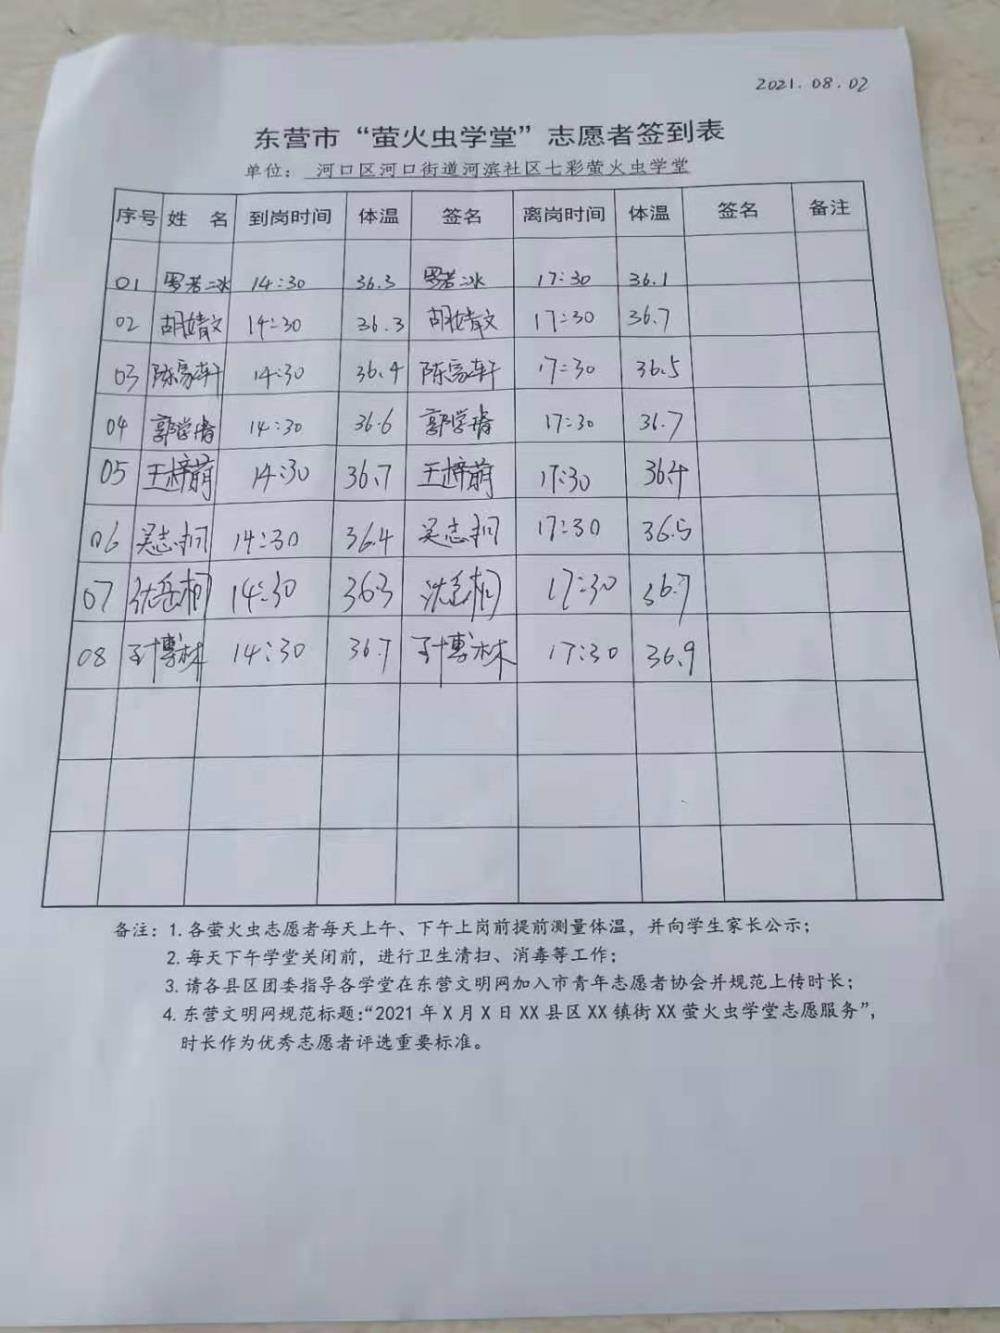 2021.08.02
东营市“萤火虫学堂”志愿者签到表
单位： 河口区河口街道河滨社区七彩萤火虫学堂
序号 姓 名 到岗时间 体温 签名 离岗时间 体温 签名 备注
01 罗若冰 14:30 36.3 罗若冰 17:30 36.1
02 胡婧文 14:30 36.3 胡婧文 17:30 36.7
03 陈家轩 14:30 36.4 陈家轩 17:30 36.5
04 郭学睿 14:30 36.6 郭学睿 17:30 36.7
05 王梓萌 14:30 36.7 王梓萌 17:30 36.4
06 吴志 14:30 36.4 吴志 17:30 36.5
07 14:30 36.3 17:30 36.7
08 博林 14:30 36.7 博林 17:30 36.9
备注：1. 各萤火虫志愿者每天上午、下午上岗前提前测量体温，并向学生家长公示；
2. 每天下午学堂关闭前，进行卫生清扫、消毒等工作；
3. 请各县区团委指导各学堂在东营文明网加入市青年志愿者协会并规范上传时长；
4. 东营文明网规范标题：“2021 年 X 月 X 日 XX 县区 XX 镇街 XX 萤火虫学堂志愿服务”，
时长作为优秀志愿者评选重要标准。